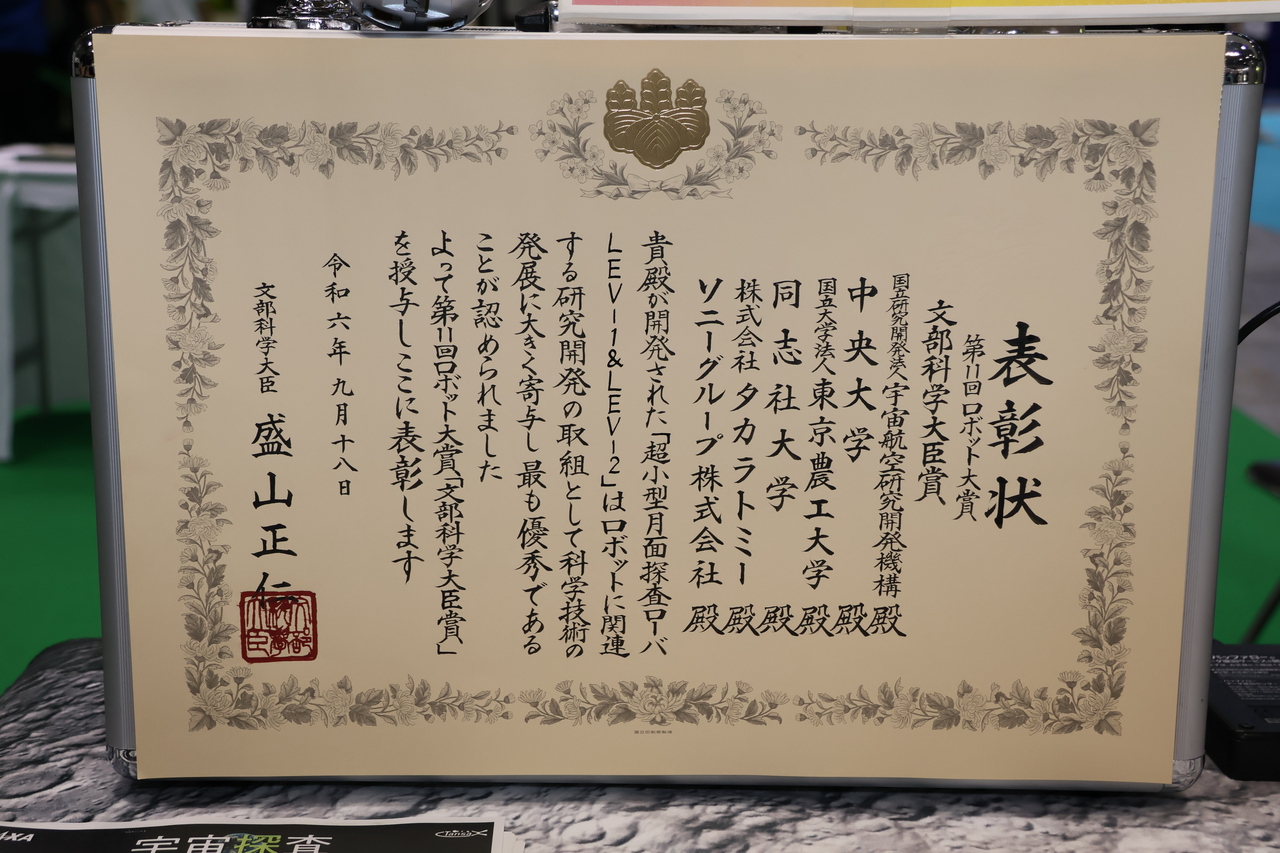 表彰状
第11回ロボット大賞
文部科学大臣賞
国立研究開発法人宇宙航空研究開発機構 殿
中央大学 殿
国立大学法人東京農工大学 殿
同志社大学 殿
株式会社タカラトミー 殿
ソニーグループ株式会社 殿
貴殿が開発された「超小型月面探査ローバ
LEV-1&LEV-2」はロボットに関連
する研究開発の取組として科学技術の
発展に大きく寄与し最も優秀である
ことが認められました
よって第11回ロボット大賞「文部科学大臣賞」
を授与しここに表彰します
令和六年九月十八日
文部科学大臣 盛山正仁
宇宙探査